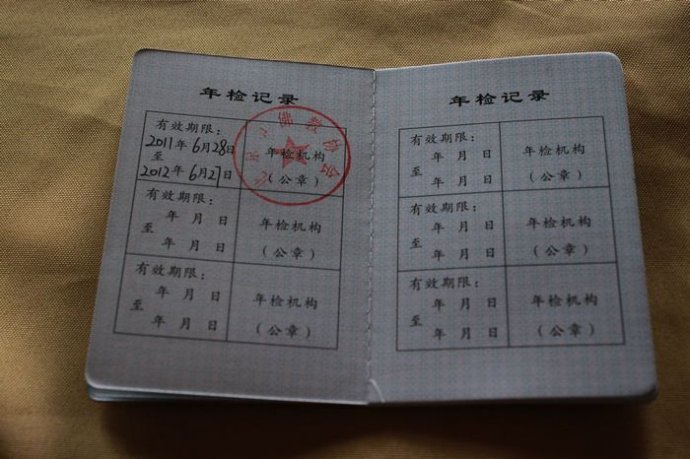 年检记录
有效期限：
2011年6月28日
至
2012年6月27日
年检机构
（公章）
佛教协会
有效期限：
年 月 日
至
年 月 日
年检机构
（公章）
有效期限：
年 月 日
至
年 月 日
年检机构
（公章）
年检记录
有效期限：
年 月 日
至
年 月 日
年检机构
（公章）
有效期限：
年 月 日
至
年 月 日
年检机构
（公章）
有效期限：
年 月 日
至
年 月 日
年检机构
（公章）